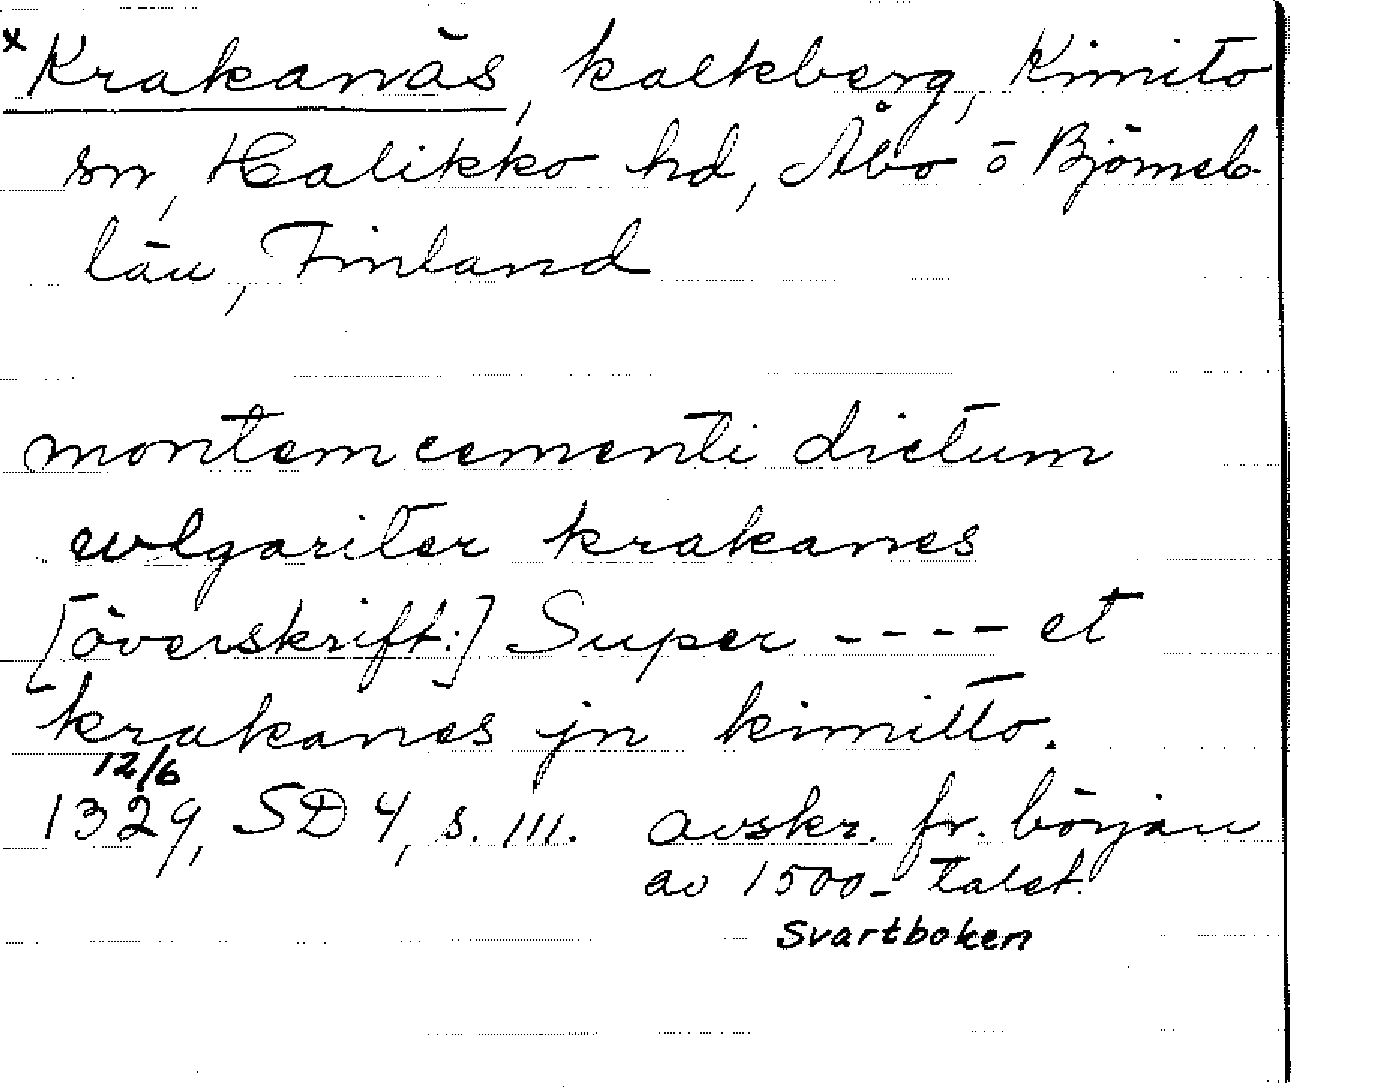 x Krakanäs, kalkberg, Kimito
sn, Halikko hd, Åbo o Björneb.
län, Finland
montem cementi dictum
wlgariter krakanes
[överskrift:] Super ---- et
krakanes jn kimitto.
12/6
1329, SD 4, s. 111. avskr. fr. början
av 1500-talet.
Svartboken